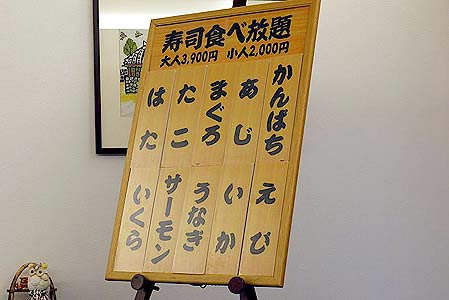 寿司食べ放題
大人3,900円 小人2,000円
かんぱち
あじ
まぐろ
たこ
はた
えび
いか
うなぎ
サーモン
いくら